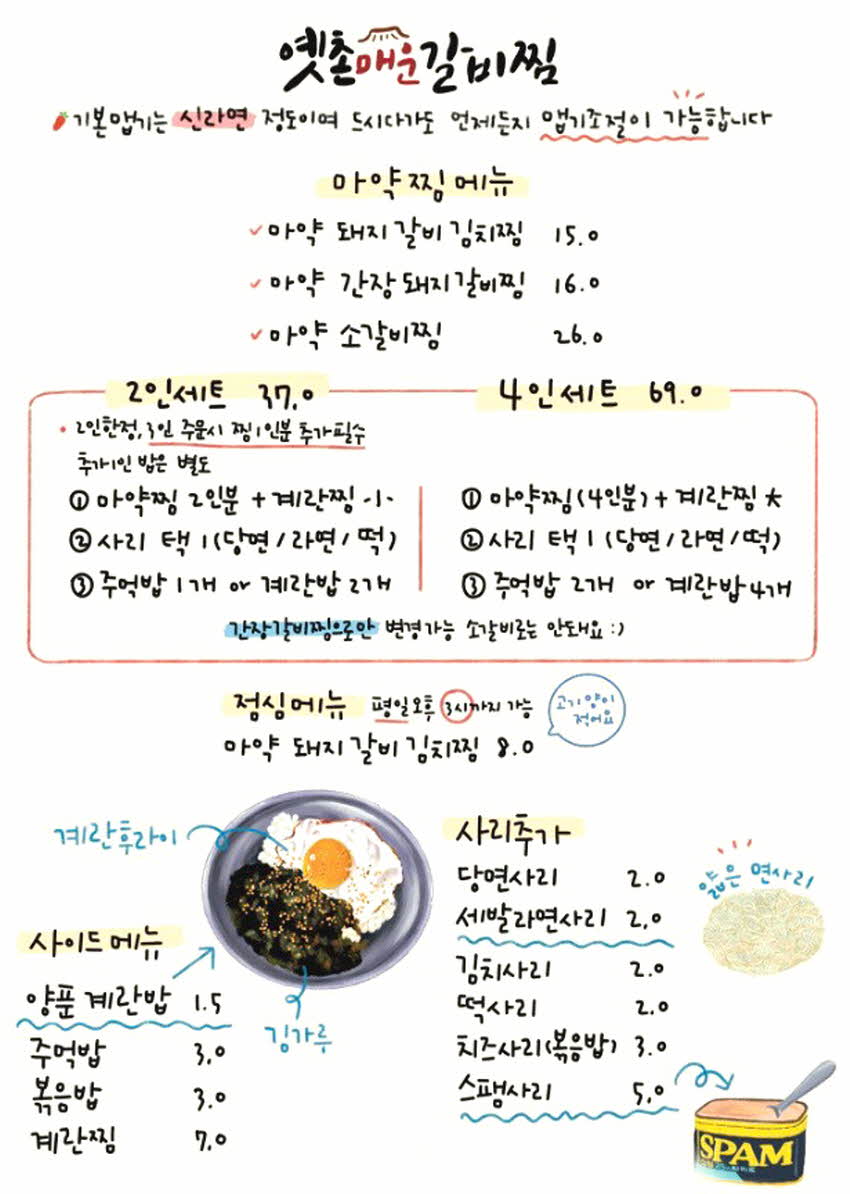 옛촌매운갈비찜
기본맵기는 신라면 정도이며 드시다가도 언제든지 맵기조절이 가능합니다
마약찜메뉴
마약 돼지갈비김치찜 15.0
마약 간장돼지갈비찜 16.0
마약 소갈비찜 26.0
2인세트 37.0
• 2인한정, 3인 주문시 찜1인분 추가필수
추가1인 밥은 별도
① 마약찜 2인분 + 계란찜 -小-
② 사리 택 1 (당면/라면/떡)
③ 주먹밥 1개 or 계란밥 2개
4인세트 69.0
① 마약찜(4인분) + 계란찜 大
② 사리 택 1 (당면/라면/떡)
③ 주먹밥 2개 or 계란밥 4개
간장갈비찜으로만 변경가능 소갈비로는 안돼요 :)
점심메뉴 평일오후 3시까지 가능
고기양이
적어요
마약 돼지갈비김치찜 8.0
계란후라이
사이드메뉴
양푼계란밥 1.5
김가루
주먹밥 3.0
볶음밥 3.0
계란찜 7.0
사리추가
당면사리 2.0
세발라면사리 2.0
얇은 면사리
김치사리 2.0
떡사리 2.0
치즈사리(볶음밥) 3.0
스팸사리 5.0
SPAM